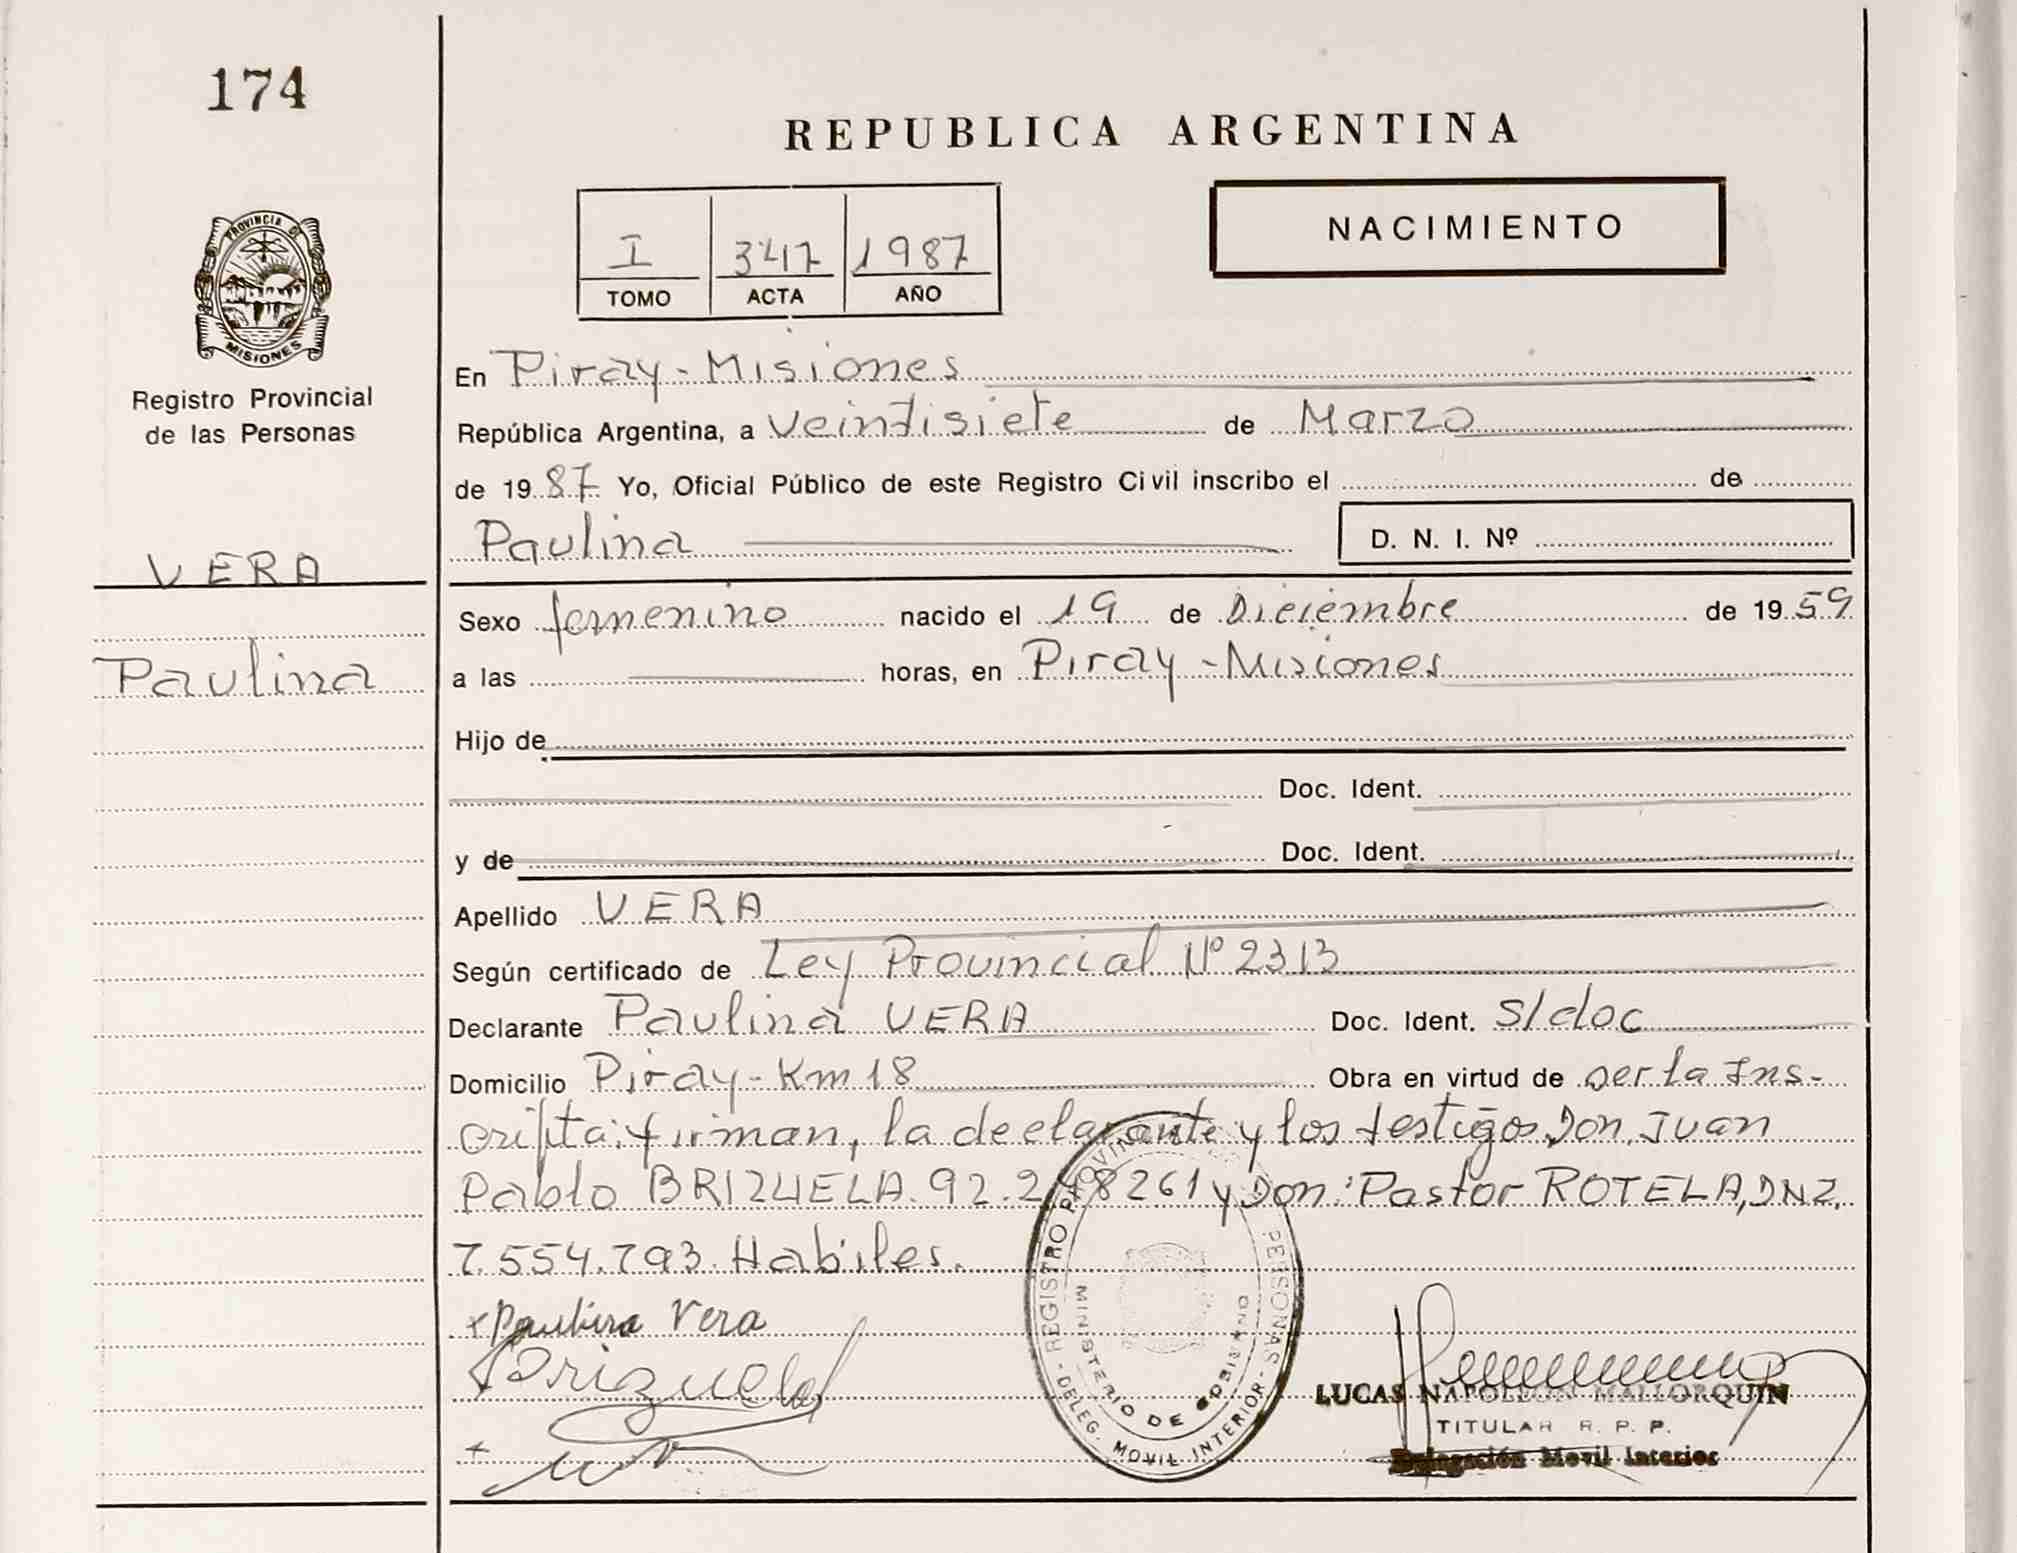 174
PROVINCIA DE
MISIONES
Registro Provincial
de las Personas
VERA
Paulina
REPUBLICA ARGENTINA
I 347 1987
TOMO ACTA AÑO
NACIMIENTO
En Piray - Misiones
República Argentina, a Veintisiete de Marzo
de 1987 Yo, Oficial Público de este Registro Civil inscribo el de
Paulina D. N. I. Nº
Sexo femenino nacido el 19 de Diciembre de 1959
a las horas, en Piray - Misiones
Hijo de
Doc. Ident.
y de Doc. Ident.
Apellido VERA
Según certificado de Ley Provincial Nº 2313
Declarante Paulina VERA Doc. Ident. S/doc
Domicilio Piray - Km 18 Obra en virtud de ser la Ins-
cripta. Firman, la declarante y los testigos Don Juan
Pablo BRIZUELA. 92.248261 y Don: Pastor ROTELA, DNI,
7.554.793. Habiles.
+ Paulina Vera
Brizuela
REGISTRO PROVINCIAL PERSONAS
MINISTERIO DE GOBIERNO
- DELEG. MOVIL INTERIOR -
LUCAS NAPOLEON MALLORQUIN
TITULAR R. P. P.
Delegación Movil Interior